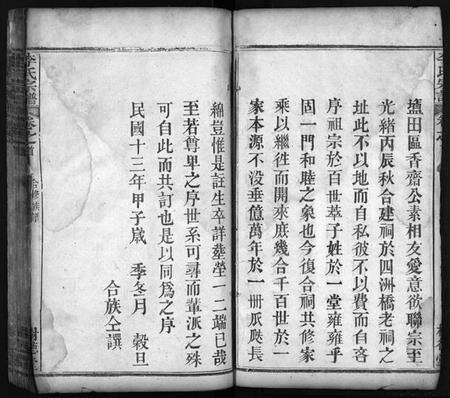 李氏宗譜
塩田區香齋公素相友愛意欲聯宗至
光緒丙辰秋合建祠於四洲橋老祠之
址此不以地而自私彼不以費而自吝
序祖宗於百世萃子姓於一堂雍雍乎
固一門和睦之象也今復合祠共修家
乘以繼徃而開來庶幾合千百世於一
家本源不没垂億萬年於一冊瓜瓞長
綿豈惟是註生卒詳塟塋一二端已哉
至若尊卑之序世系可尋而輩派之殊
可自此而共訂也是以同為之序
民國十三年甲子嵗 季冬月 穀旦
合族仝譔
李氏宗譜
卷之首
合修族譜